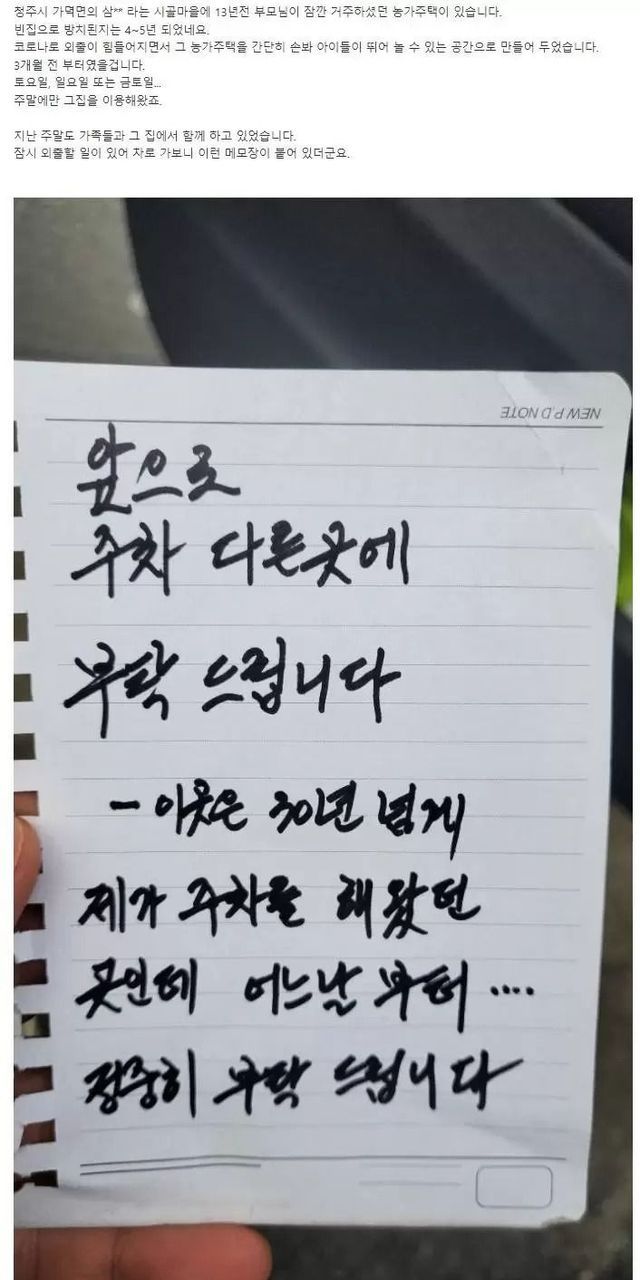 청주시 가덕면의 삼** 라는 시골마을에 13년전 부모님이 잠깐 거주하셨던 농가주택이 있습니다.
빈집으로 방치된지는 4~5년 되었네요.
코로나로 외출이 힘들어지면서 그 농가주택을 간단히 손봐 아이들이 뛰어 놀 수 있는 공간으로 만들어 두었습니다.
3개월 전 부터였을겁니다.
토요일, 일요일 또는 금토일...
주말에만 그집을 이용해왔죠.
지난 주말도 가족들과 그 집에서 함께 하고 있었습니다.
잠시 외출할 일이 있어 차로 가보니 이런 메모장이 붙어 있더군요.
NEW P.D NOTE
앞으로
주차 다른곳에
부탁 드립니다
- 이곳은 30년 넘게
제가 주차를 해왔던
곳인데 어느날 부터 ....
정중히 부탁 드립니다